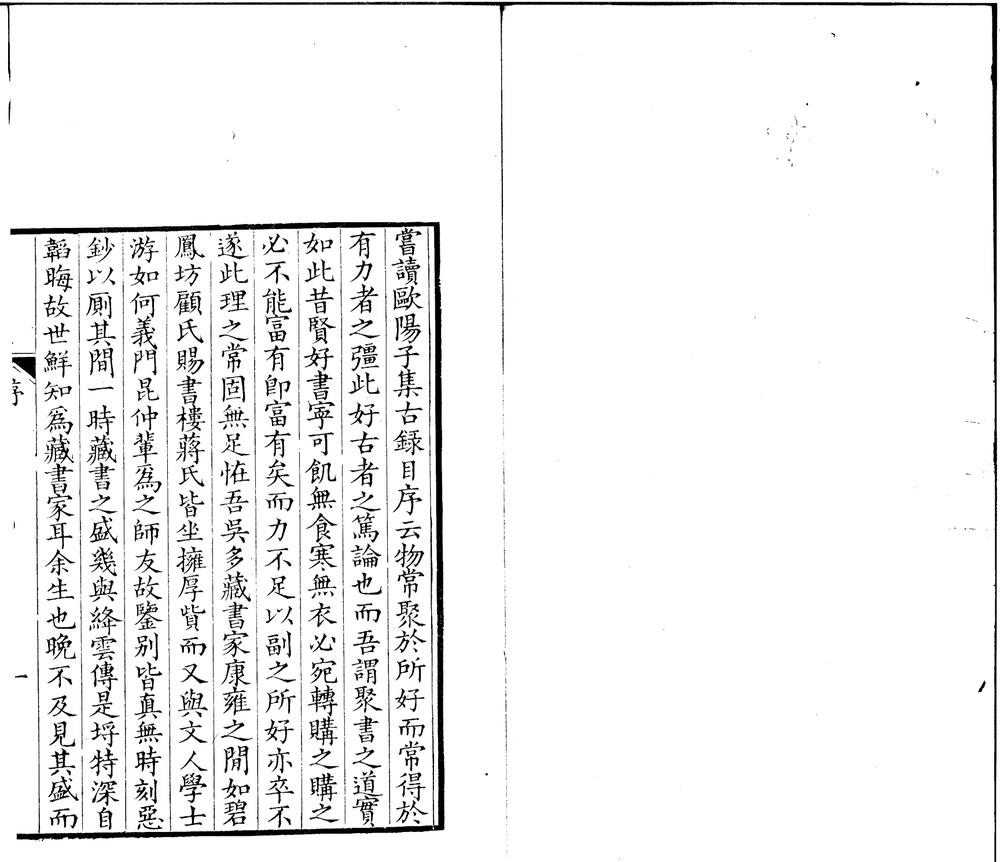 嘗讀歐陽子集古錄目序云物常聚於所好而常得於
有力者之彊此好古者之篤論也而吾謂聚書之道實
如此昔賢好書寧可飢無食寒無衣必宛轉購之購之
必不能富有卽富有矣而力不足以副之所好亦卒不
遂此理之常固無足恠吾吳多藏書家康雍之閒如碧
鳳坊顧氏賜書樓蔣氏皆坐擁厚貲而又與文人學士
游如何義門昆仲輩爲之師友故鑒别皆真無時刻惡
鈔以厠其間一時藏書之盛幾與絳雲傳是埒特深自
韜晦故世鮮知爲藏書家耳余生也晚不及見其盛而
序
一